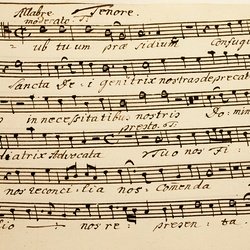 Allabre. Tenore.
moderato. Tj.
ub tuum præ sidium confugi
Sancta De i genitrix nostras depreca
in necessitatibus nostris Do mi
presto. Tj.
diatrix Advocata Tuo nos Fi
nos reconci lia nos Comenda
io nos re presen ta